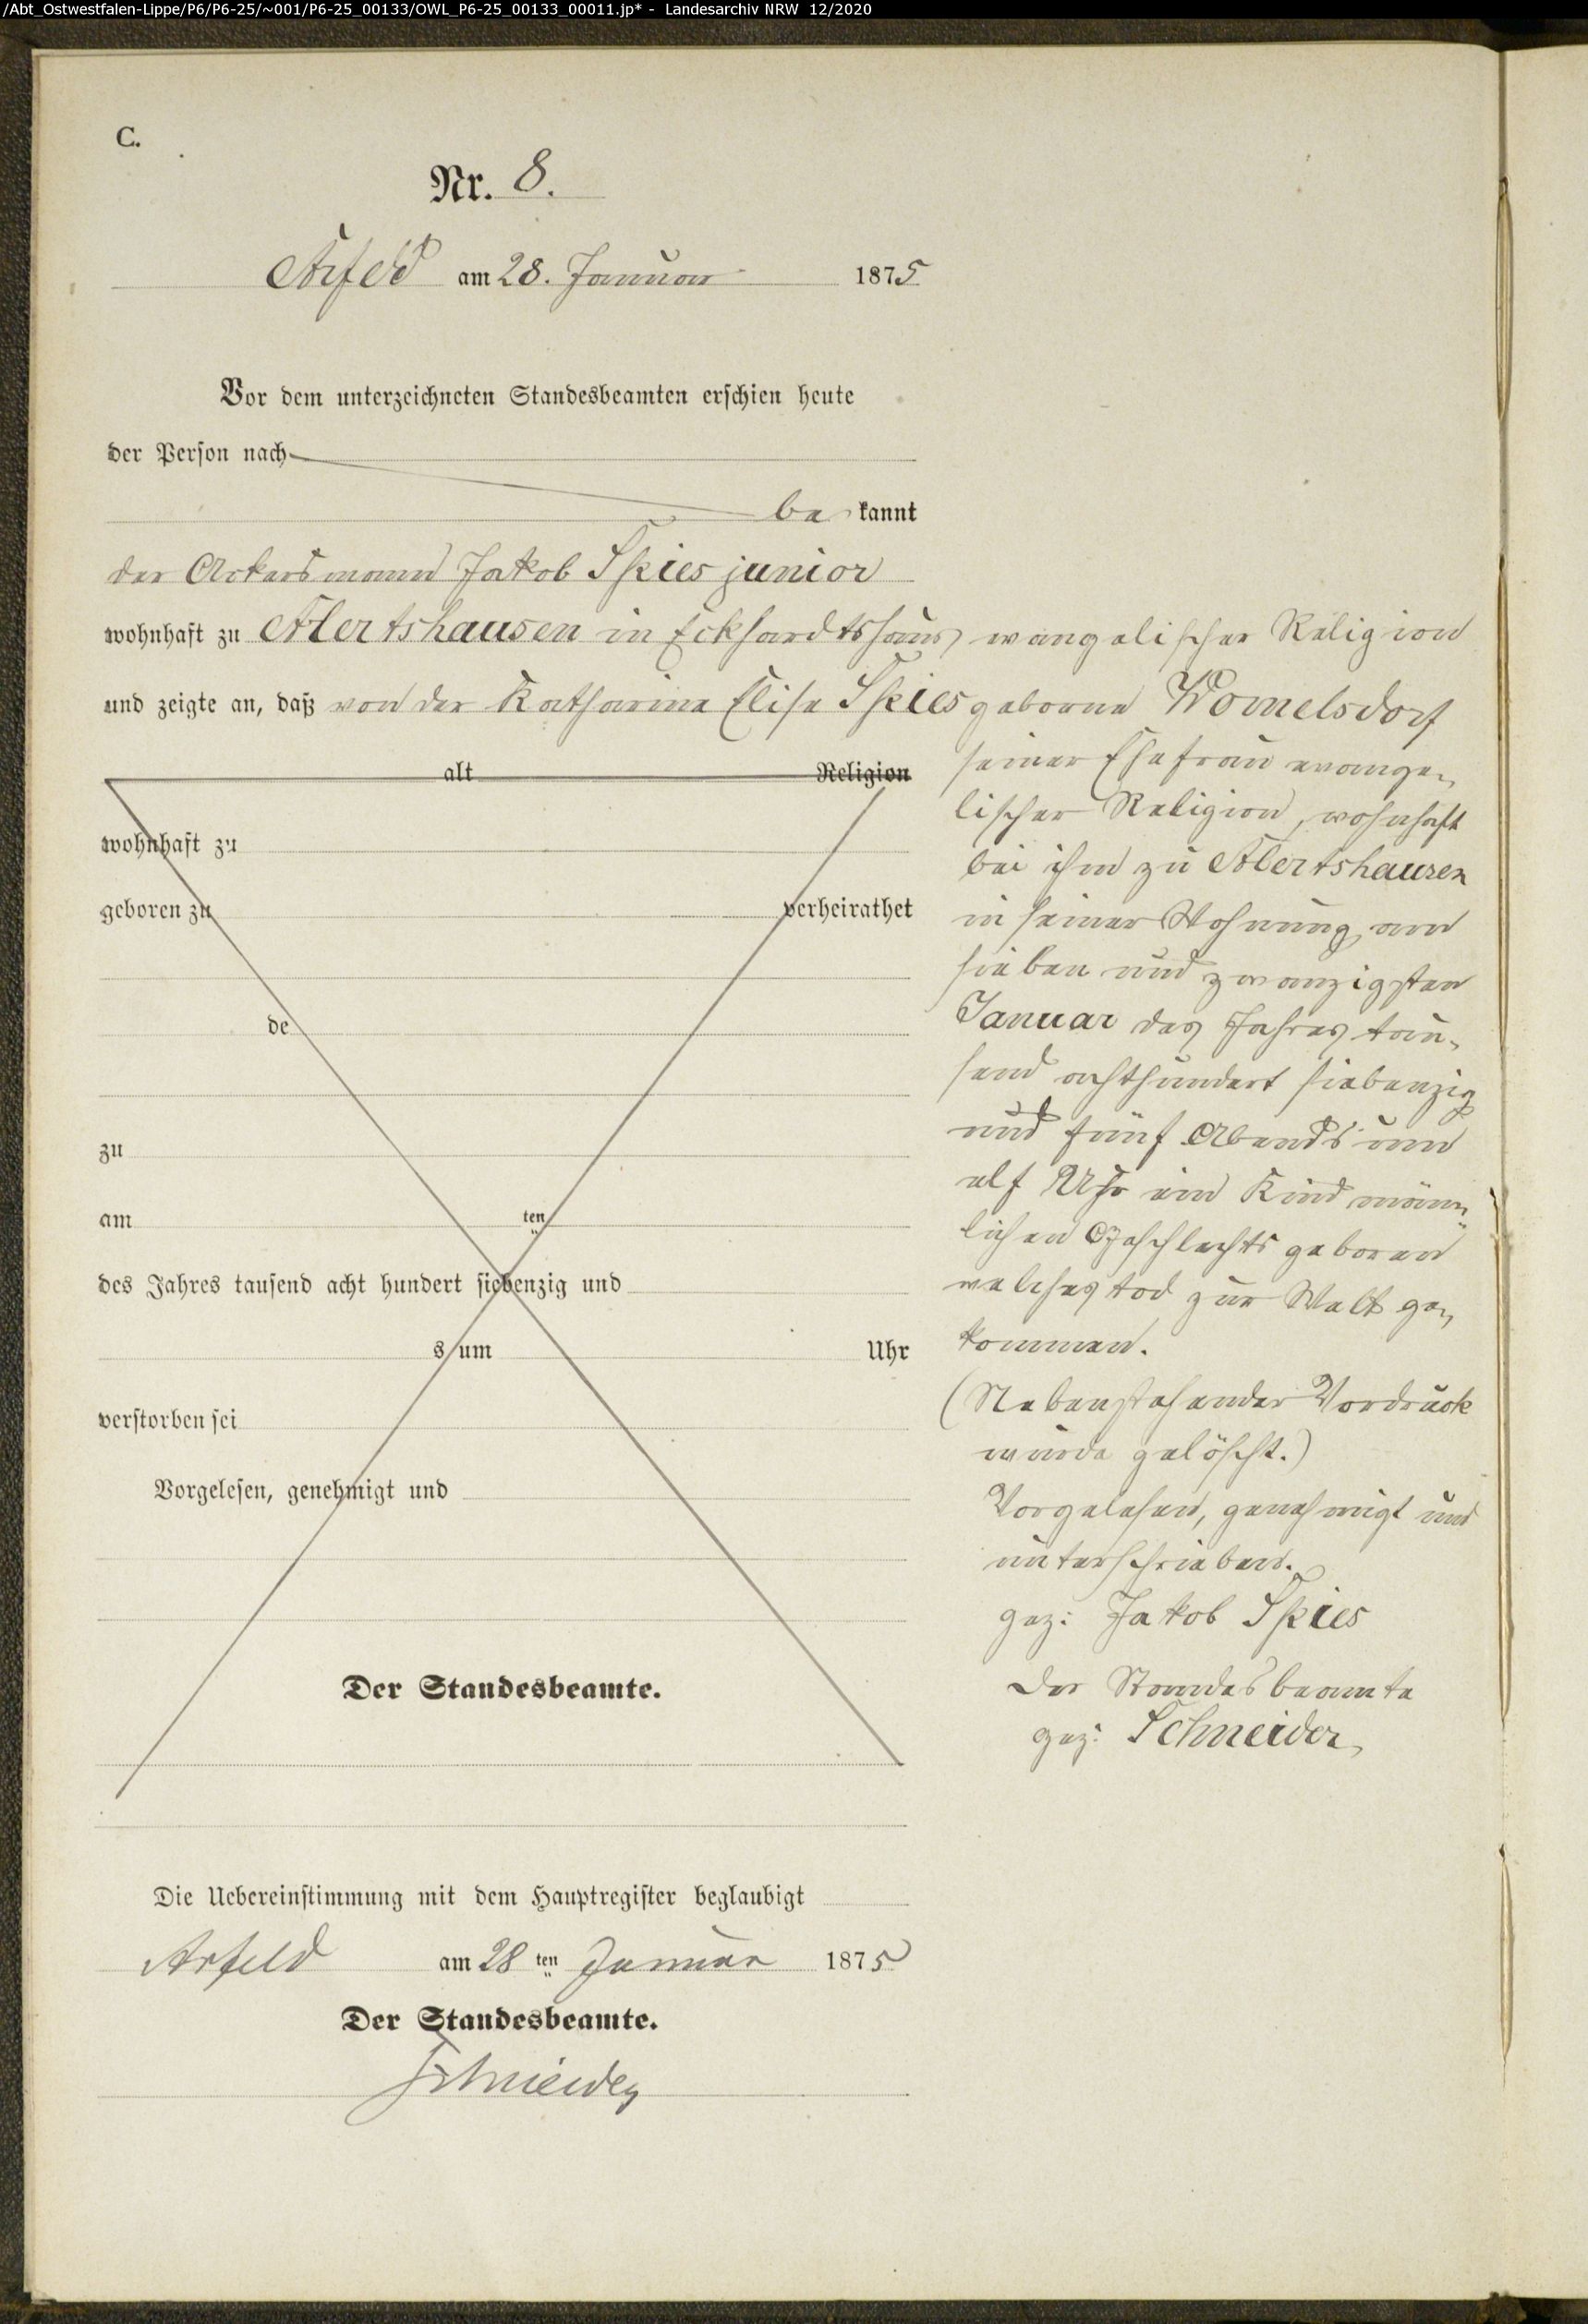 /Abt_Ostwestfalen-Lippe/P6/P6-25/~001/P6-25_00133/OWL_P6-25_00133_00011.jp* - Landesarchiv NRW 12/2020
C.
Nr. 8.
Arfeld am 28. Januar 1875
Vor dem unterzeichneten Standesbeamten erschien heute
der Person nach
be kannt
der Ackersmann Jakob Spies junior
wohnhaft zu Alertshausen in Eckhardtshaus evangelischer Religion
und zeigte an, daß von der Katharina Elise Spies geborne Womelsdorf
alt Religion
seiner Ehefrau evange-
lischer Religion, wohnhaft
wohnhaft zu
bei ihm zu Alertshausen
geboren zu verheirathet
in seiner Wohnung am
sieben und zwanzigsten
de
Januar des Jahres tau-
send achthundert siebenzig
zu
und fünf Abends um
elf Uhr ein Kind männ-
am ten
lichen Geschlechts geboren
des Jahres tausend acht hundert siebenzig und
welches tod zur Welt ge-
s um Uhr
kommen.
verstorben sei
(Nebenstehender Vordruck
wurde gelöscht.)
Vorgelesen, genehmigt und
Vorgelesen, genehmigt und
unterschrieben.
gez: Jakob Spies
Der Standesbeamte.
Der Standesbeamte
gez: Schneider
Die Uebereinstimmung mit dem Hauptregister beglaubigt
Arfeld am 28 ten Januar 1875
Der Standesbeamte.
Schneider